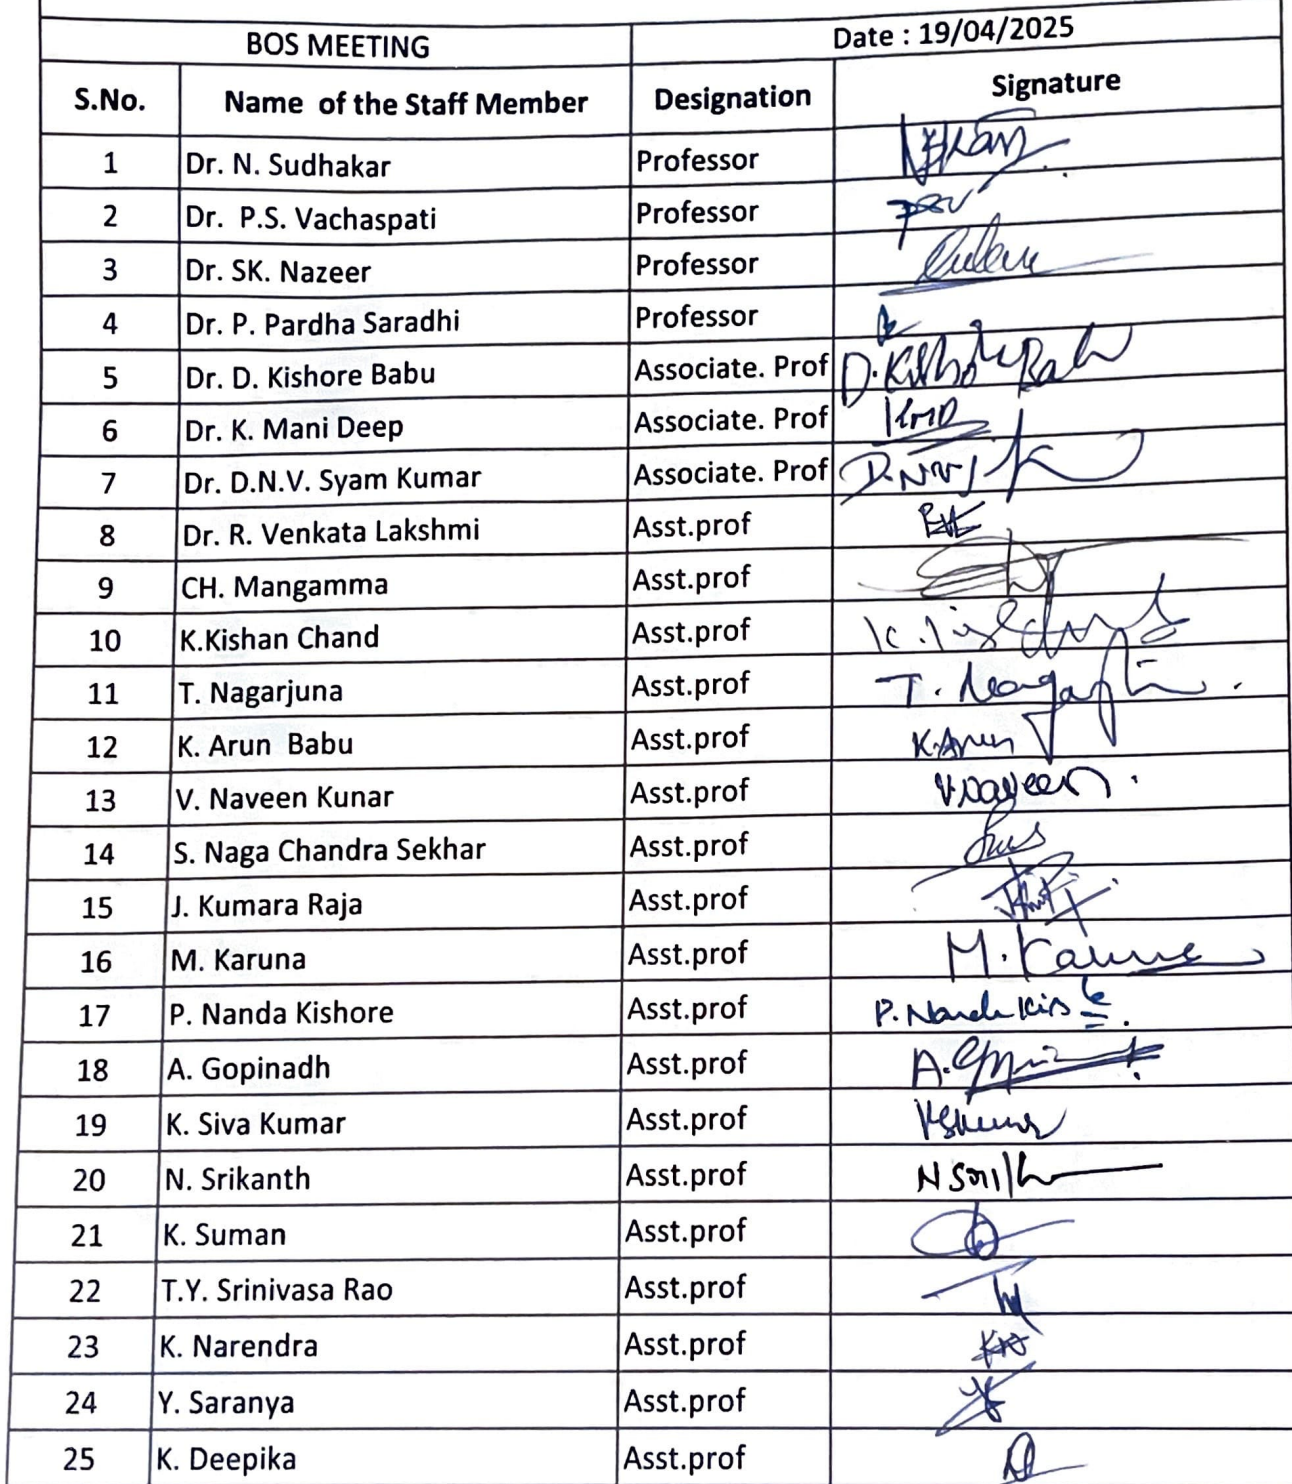 BOS MEETING Date : 19/04/2025
S.No. Name of the Staff Member Designation Signature
1 Dr. N. Sudhakar Professor
2 Dr. P.S. Vachaspati Professor psv
3 Dr. SK. Nazeer Professor
4 Dr. P. Pardha Saradhi Professor
5 Dr. D. Kishore Babu Associate. Prof D. Kishore Babu
6 Dr. K. Mani Deep Associate. Prof KMD
7 Dr. D.N.V. Syam Kumar Associate. Prof
8 Dr. R. Venkata Lakshmi Asst.prof
9 CH. Mangamma Asst.prof
10 K.Kishan Chand Asst.prof
11 T. Nagarjuna Asst.prof
12 K. Arun Babu Asst.prof K.Arun
13 V. Naveen Kunar Asst.prof V.Naveen
14 S. Naga Chandra Sekhar Asst.prof
15 J. Kumara Raja Asst.prof
16 M. Karuna Asst.prof M. Karuna
17 P. Nanda Kishore Asst.prof
18 A. Gopinadh Asst.prof
19 K. Siva Kumar Asst.prof
20 N. Srikanth Asst.prof
21 K. Suman Asst.prof
22 T.Y. Srinivasa Rao Asst.prof
23 K. Narendra Asst.prof
24 Y. Saranya Asst.prof
25 K. Deepika Asst.prof